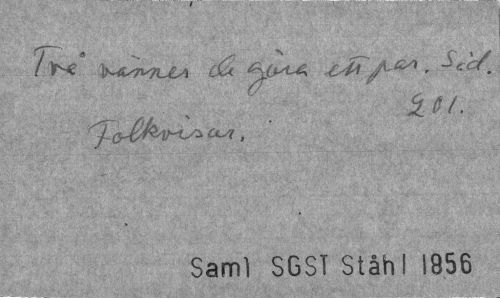 Två vänner de göra ett par. Sid.
201.
Folkvisar.
Saml SGST Ståhl 1856